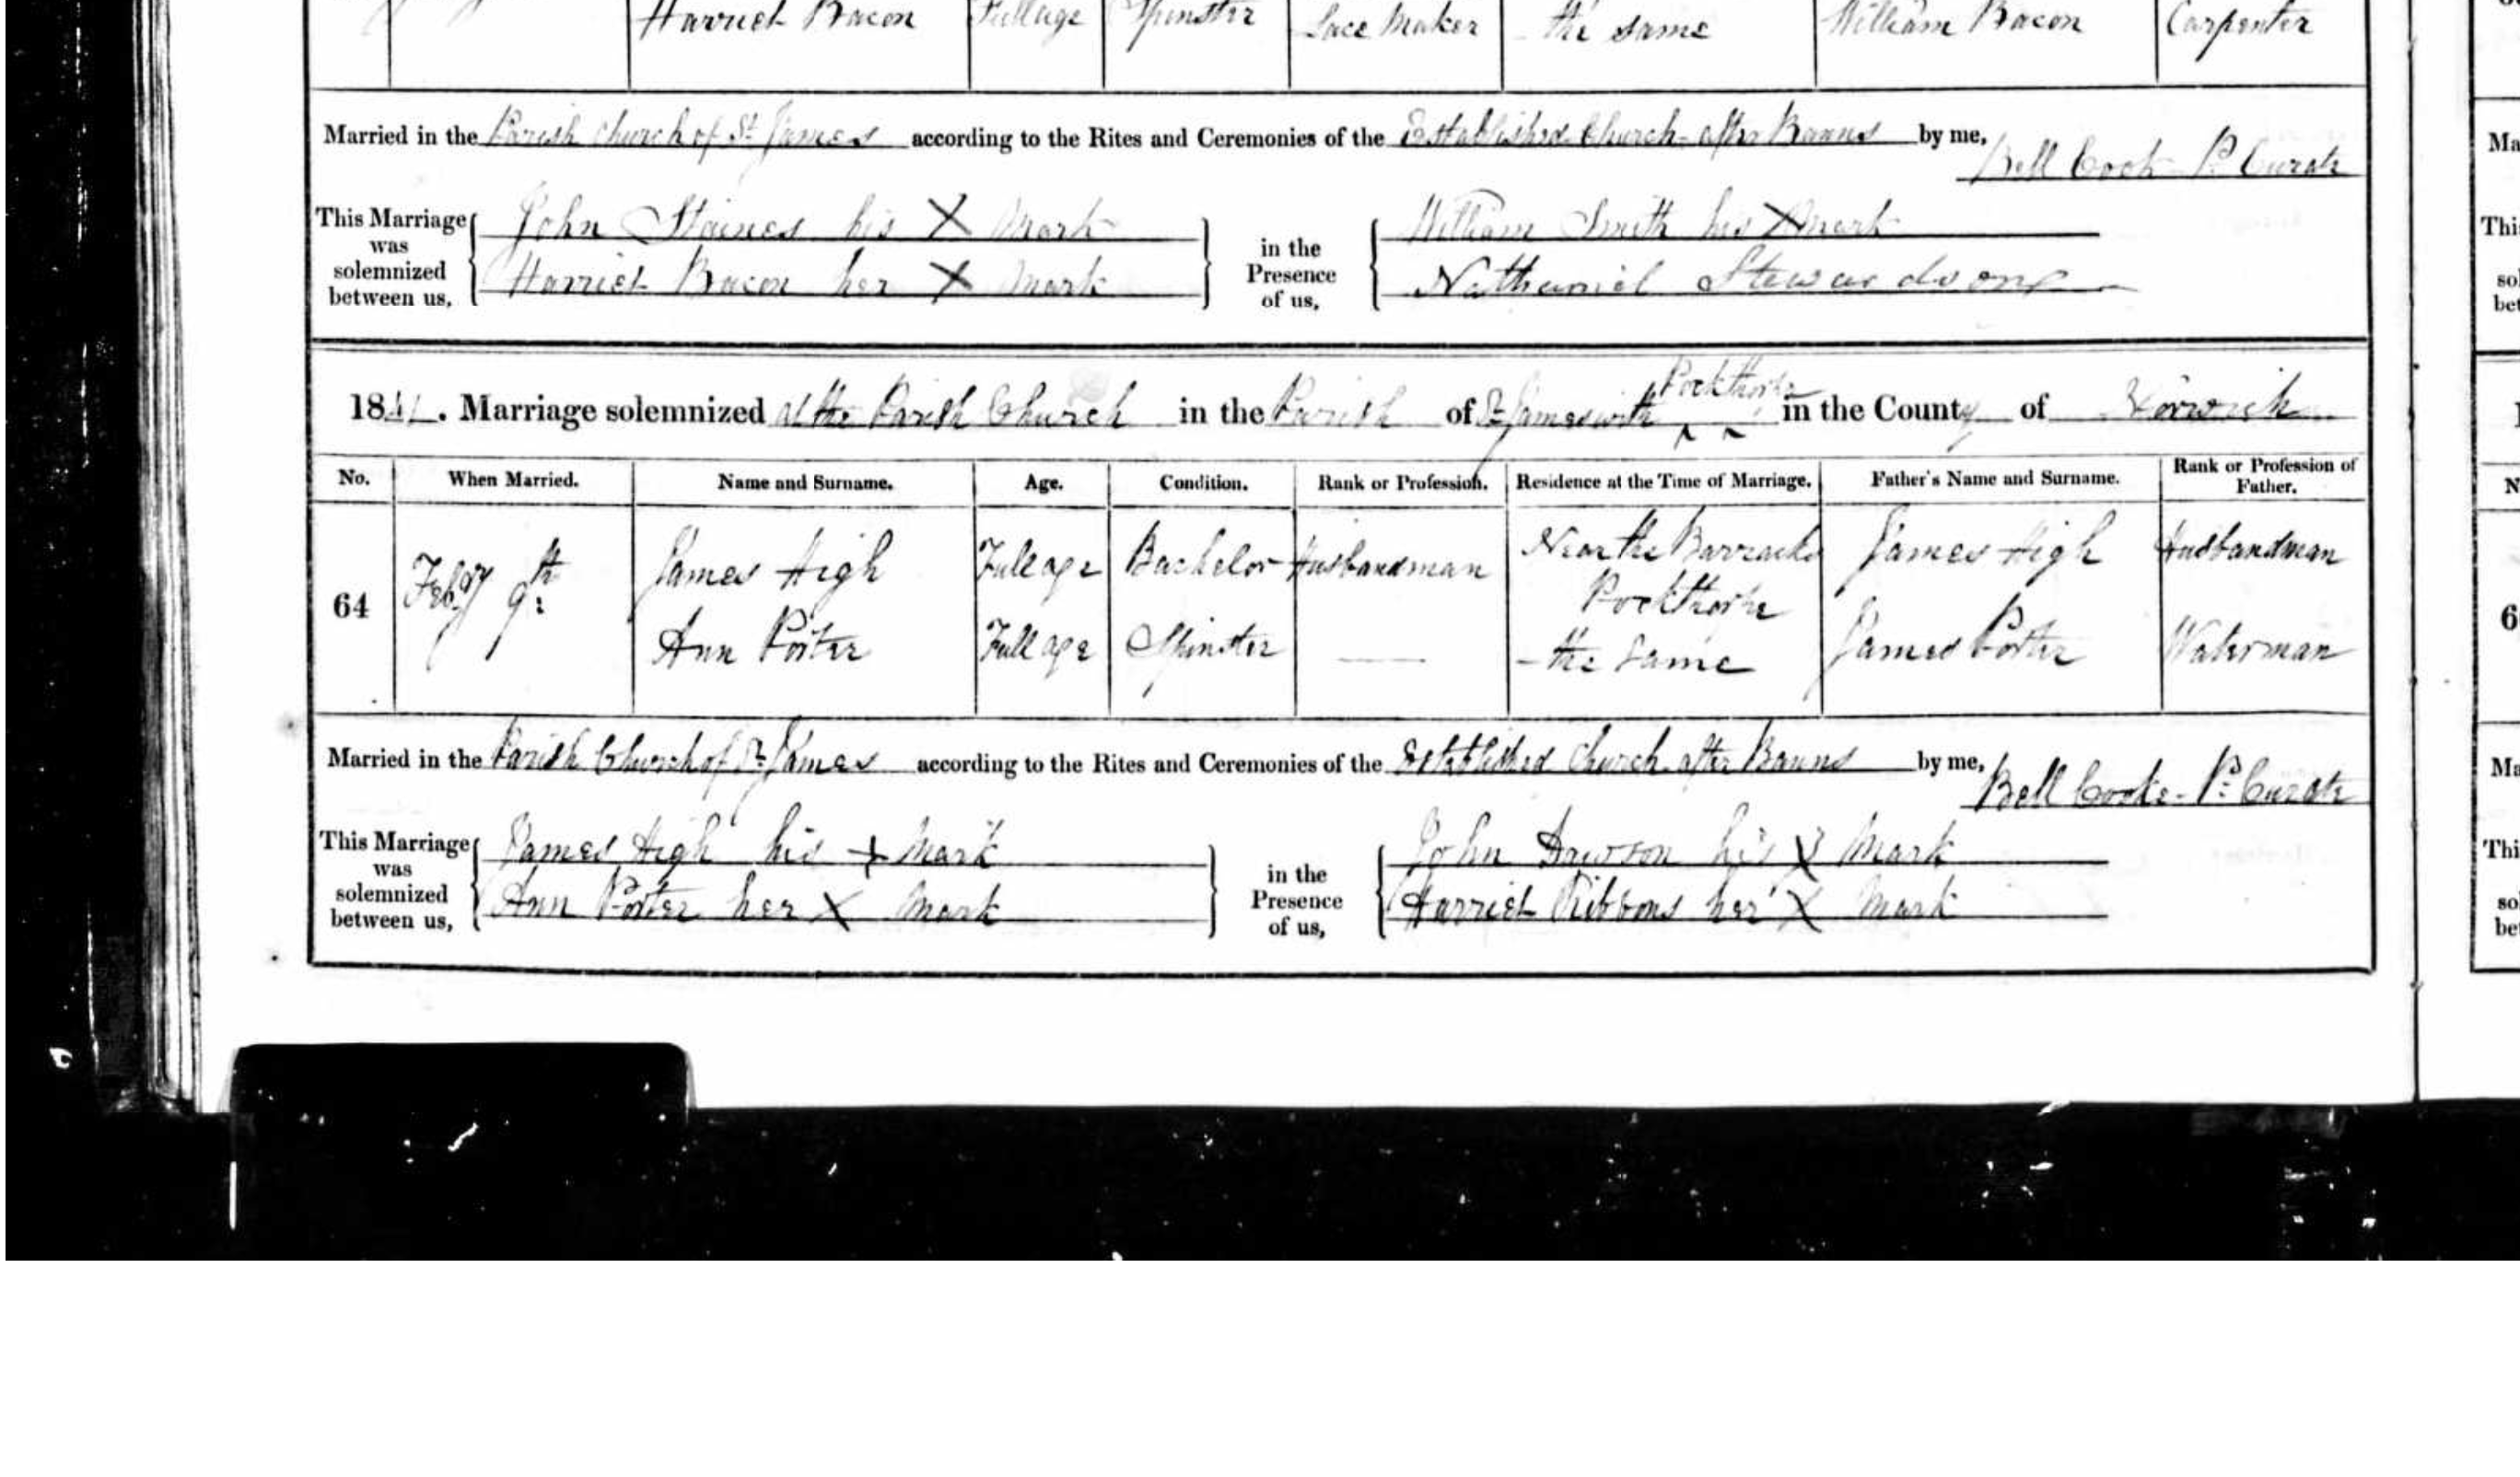 Harriet Bacon Full age Spinster Lace Maker the same William Bacon Carpenter
Married in the Parish Church of St James according to the Rites and Ceremonies of the Established Church after Banns by me,
Bell Cook P. Curate
This Marriage was solemnized between us,
John Staines his X Mark
Harriet Bacon her X Mark
in the Presence of us,
William Smith his X Mark
Nathaniel
1841. Marriage solemnized at the Parish Church in the Parish of St James with Pockthorpe in the County of Norwich
No. When Married. Name and Surname. Age. Condition. Rank or Profession. Residence at the Time of Marriage. Father's Name and Surname. Rank or Profession of Father.
64 Feby 9th James High Full age Bachelor Husbandman Near the Barracks Pockthorpe James High Husbandman
Ann Porter Full age Spinster — the same James Porter Waterman
Married in the Parish Church of St James according to the Rites and Ceremonies of the Established Church after Banns by me,
Bell Cooke P. Curate
This Marriage was solemnized between us,
James High his + Mark
Ann Porter her X Mark
in the Presence of us,
John Dawson his X Mark
Harriet Ribbons her X Mark
Ma
Thi
so
bet
N
6
Ma
Thi
so
bet